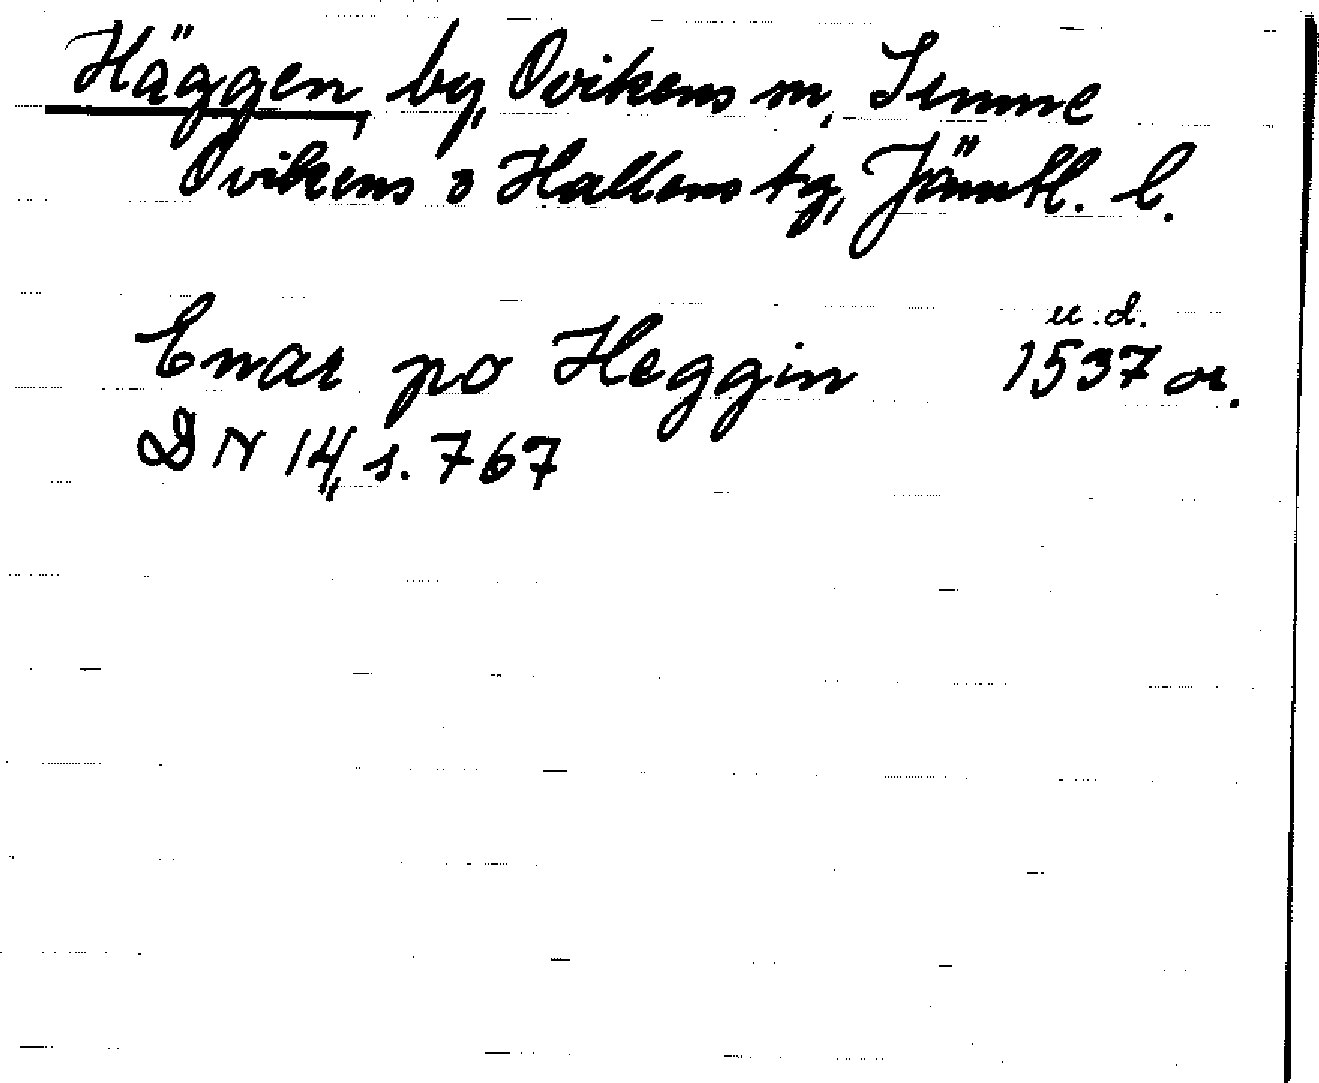 Häggen, by, Ovikens sn, Sunne
Ovikens o Hallens tg, Jämtl. l.
u.d.
Enar po Heggin 1537 or.
DN 14, s. 767